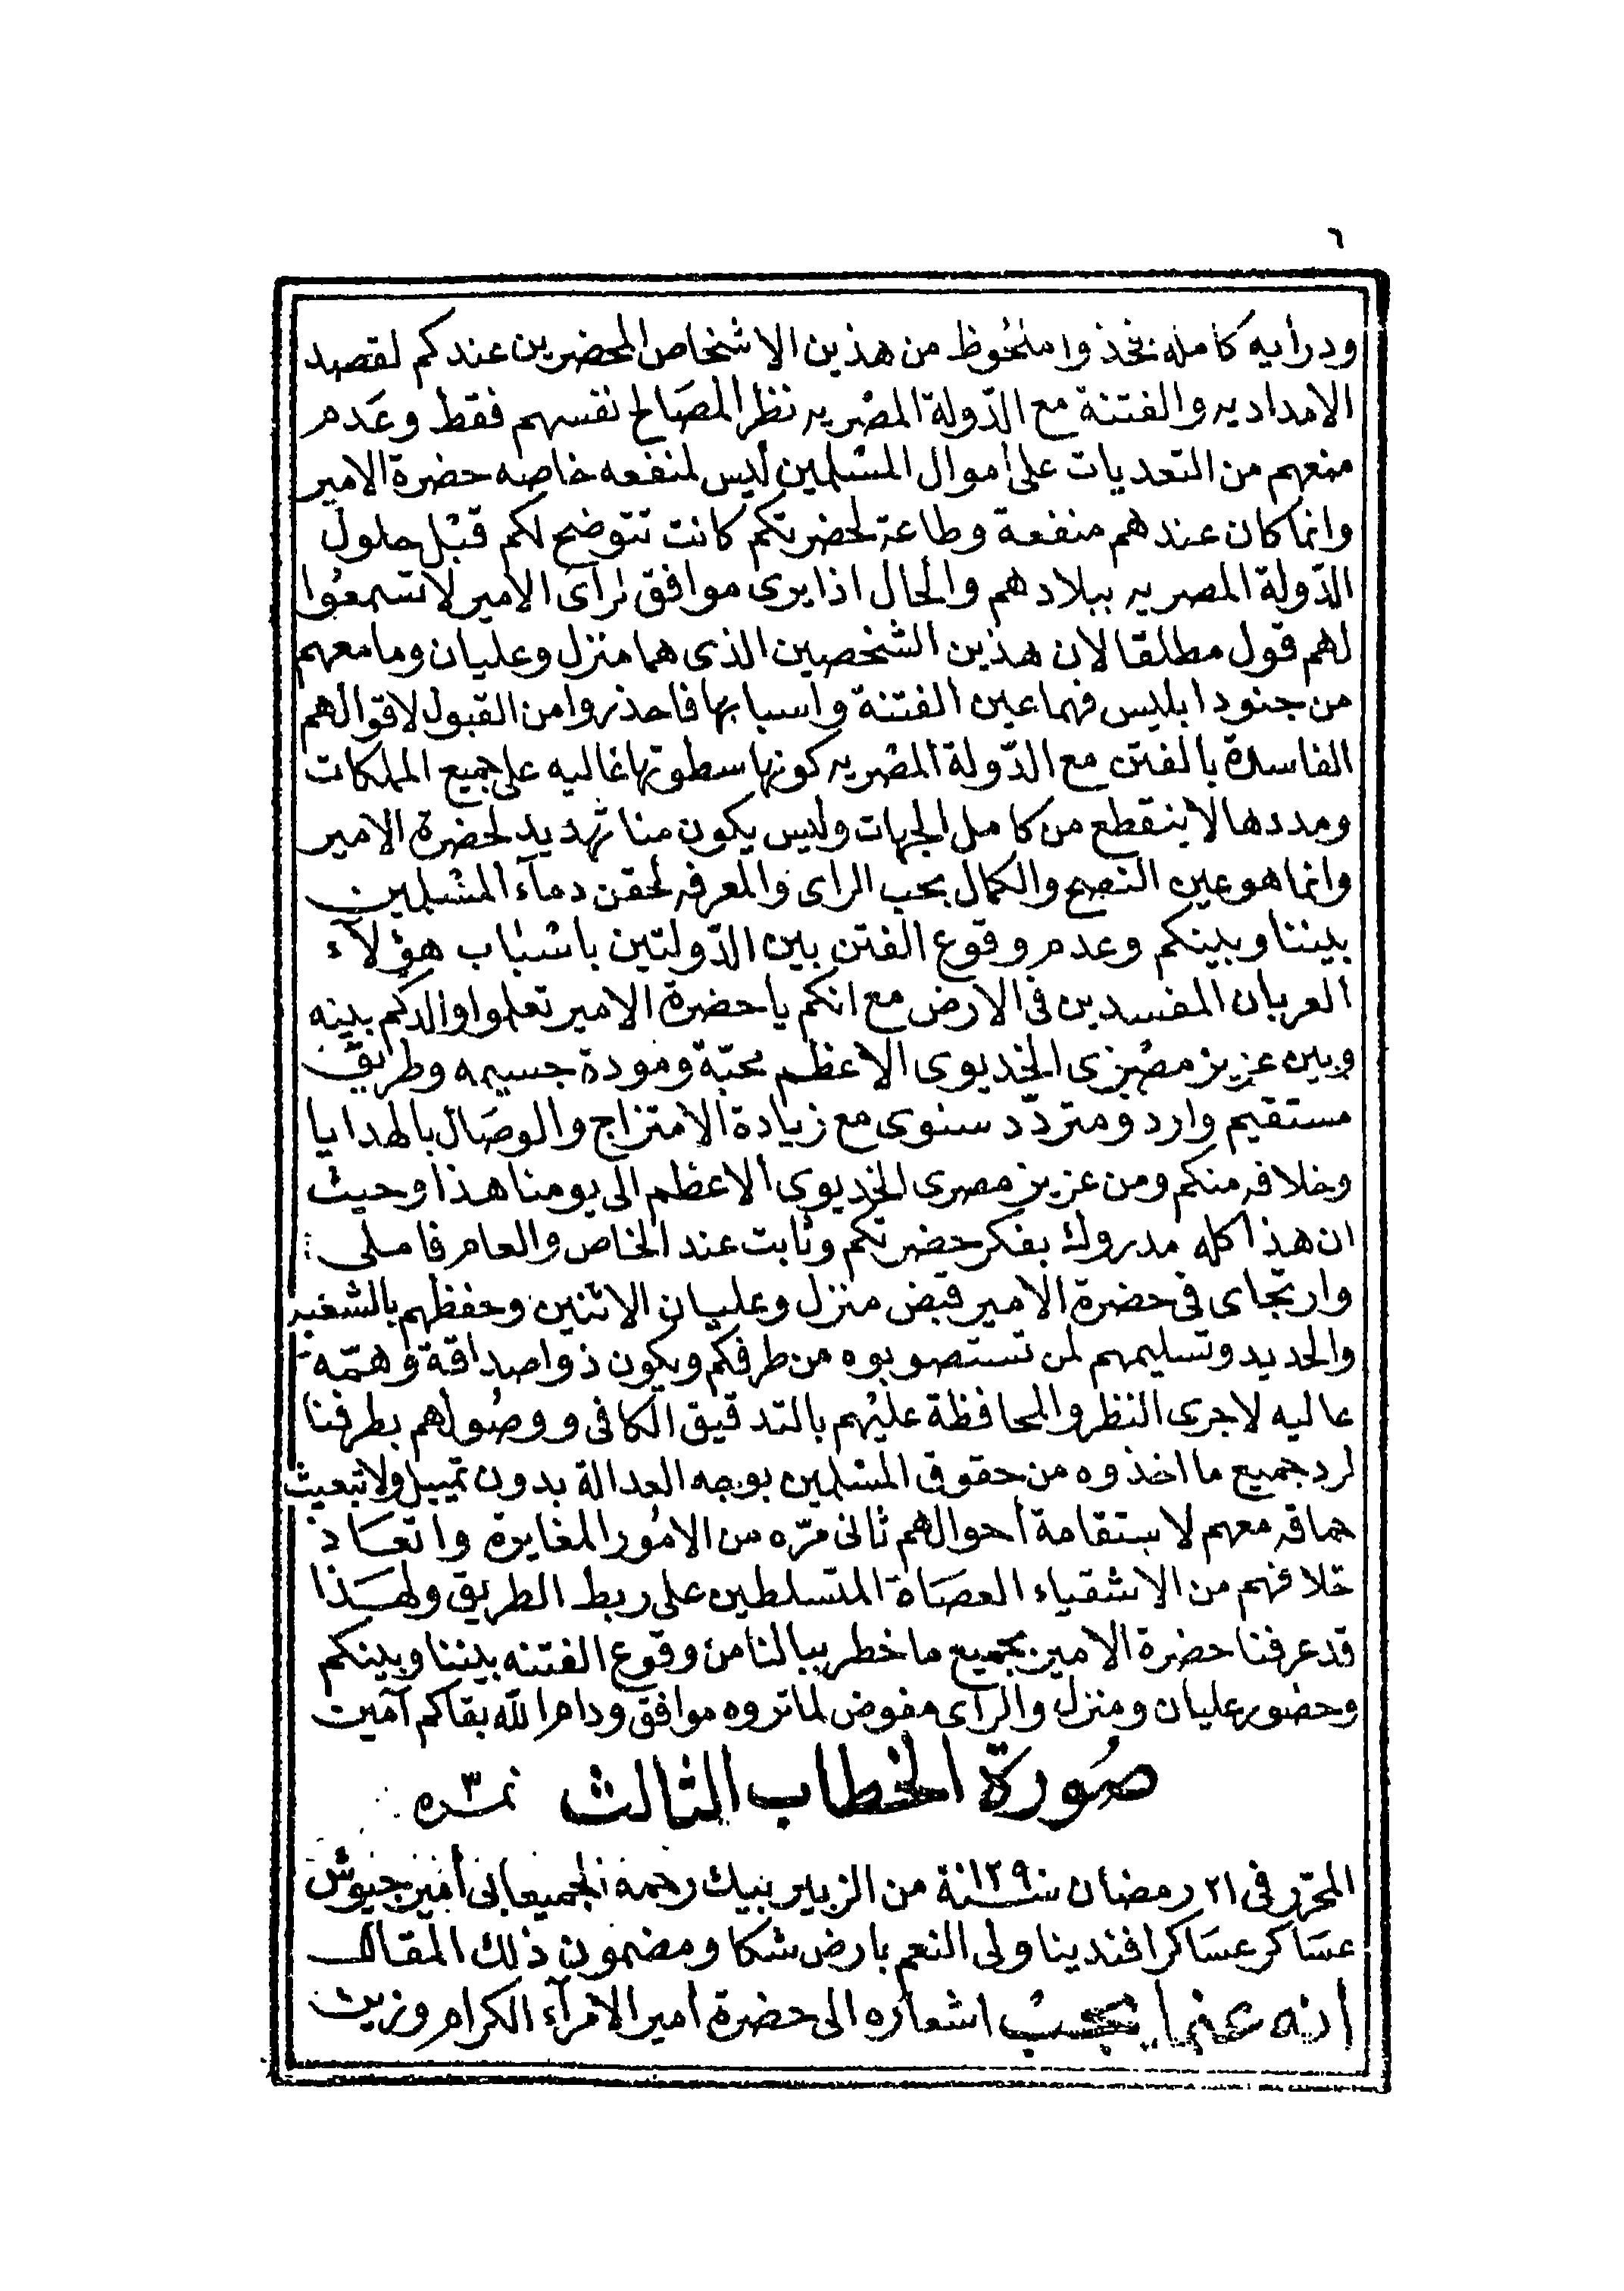 ٦
ودرايه كامله نخذوا منحوظ من هذين الاشخاص المحضرين عندكم لقصد
الامداديه والفتنة مع الدّولة المصريه نظر المصالح نفسهم فقط وعدم
منعهم من التعديات على أموال المسلمين ليس لمنفعه خاصه حضرة الامير
وانما كان عندهم منفعة وطاعة لحضرتكم كانت تتوضح لكم قبل حلول
الدّولة المصريه ببلادهم والحال اذا يرى موافق لرآى الامير لا تسمعوا
لهم قول مطلقا لان هذين الشخصين الذى هما منزل وعليان وما معهم
من جنود ابليس فهما عين الفتنة واسبابها فاحذروا من القبول لاقوالهم
الفاسدة بالفتن مع الدّولة المصريه كونها سطوتها غاليه على جميع الملكات
ومددها لا ينقطع من كامل الجهات وليس يكون منا تهديد لحضرة الامير
وانما هو عين النصح والكمال بحب الراى والمعرفه لحقن دمآء المسلمين
بيننا وبينكم وعدم وقوع الفتن بين الدّولتين باسباب هؤلآء
العربان المفسدين فى الارض مع انكم يا حضرة الامير تعلموا والدكم بينه
وبين عزيز مصرى الخديوى الاعظم محبّة ومودة جسيمه وطريق
مستقيم وارد ومتردّد سنوى مع زيادة الامتزاج والوصال بالهدايا
وخلافه منكم ومن عزيز مصرى الخديوى الاعظم الى يومنا هذا وحيث
ان هذا كله مدروك بفكر حضرتكم وثابت عند الخاص والعام فاملى
وارتجاى فى حضرة الامير قبض منزل وعليان الاثنين وحفظهم بالشغبه
والحديد وتسليمهم لمن تستصوبوه من طرفكم ويكون ذو اصداقة وهمّه
عاليه لاجرى النظر والمحافظة عليهم بالتدقيق الكافى ووصولهم بطرفنا
لرد جميع ما اخذوه من حقوق المسلمين بوجه العدالة بدون تمييل ولا تبعيث
حماقه معهم لاستقامة أحوالهم ثانى مرّه من الامور المغايرة واتعاد
خلافهم من الاشقياء العصاة المتسلطين على ربط الطريق ولهذا
قد عرفنا حضرة الامير بجميع ما خطر ببالنا من وقوع الفتنه بيننا وبينكم
وحضور عليان ومنزل والرآى مفوض لما تروه موافق ودام الله بقاكم آمين
صورة الخطاب الثالث نمره ٣
المحرّر فى ٢١ رمضان سنة ١٢٩٠ من الزبير بيك رحمة الجميعابى أمير جيوش
عساكر عساكر افندينا ولى النعم بارض شكا ومضمون ذلك المقال
انه عنما يجب اشعاره الى حضرة أمير الامرآء الكرام وزين